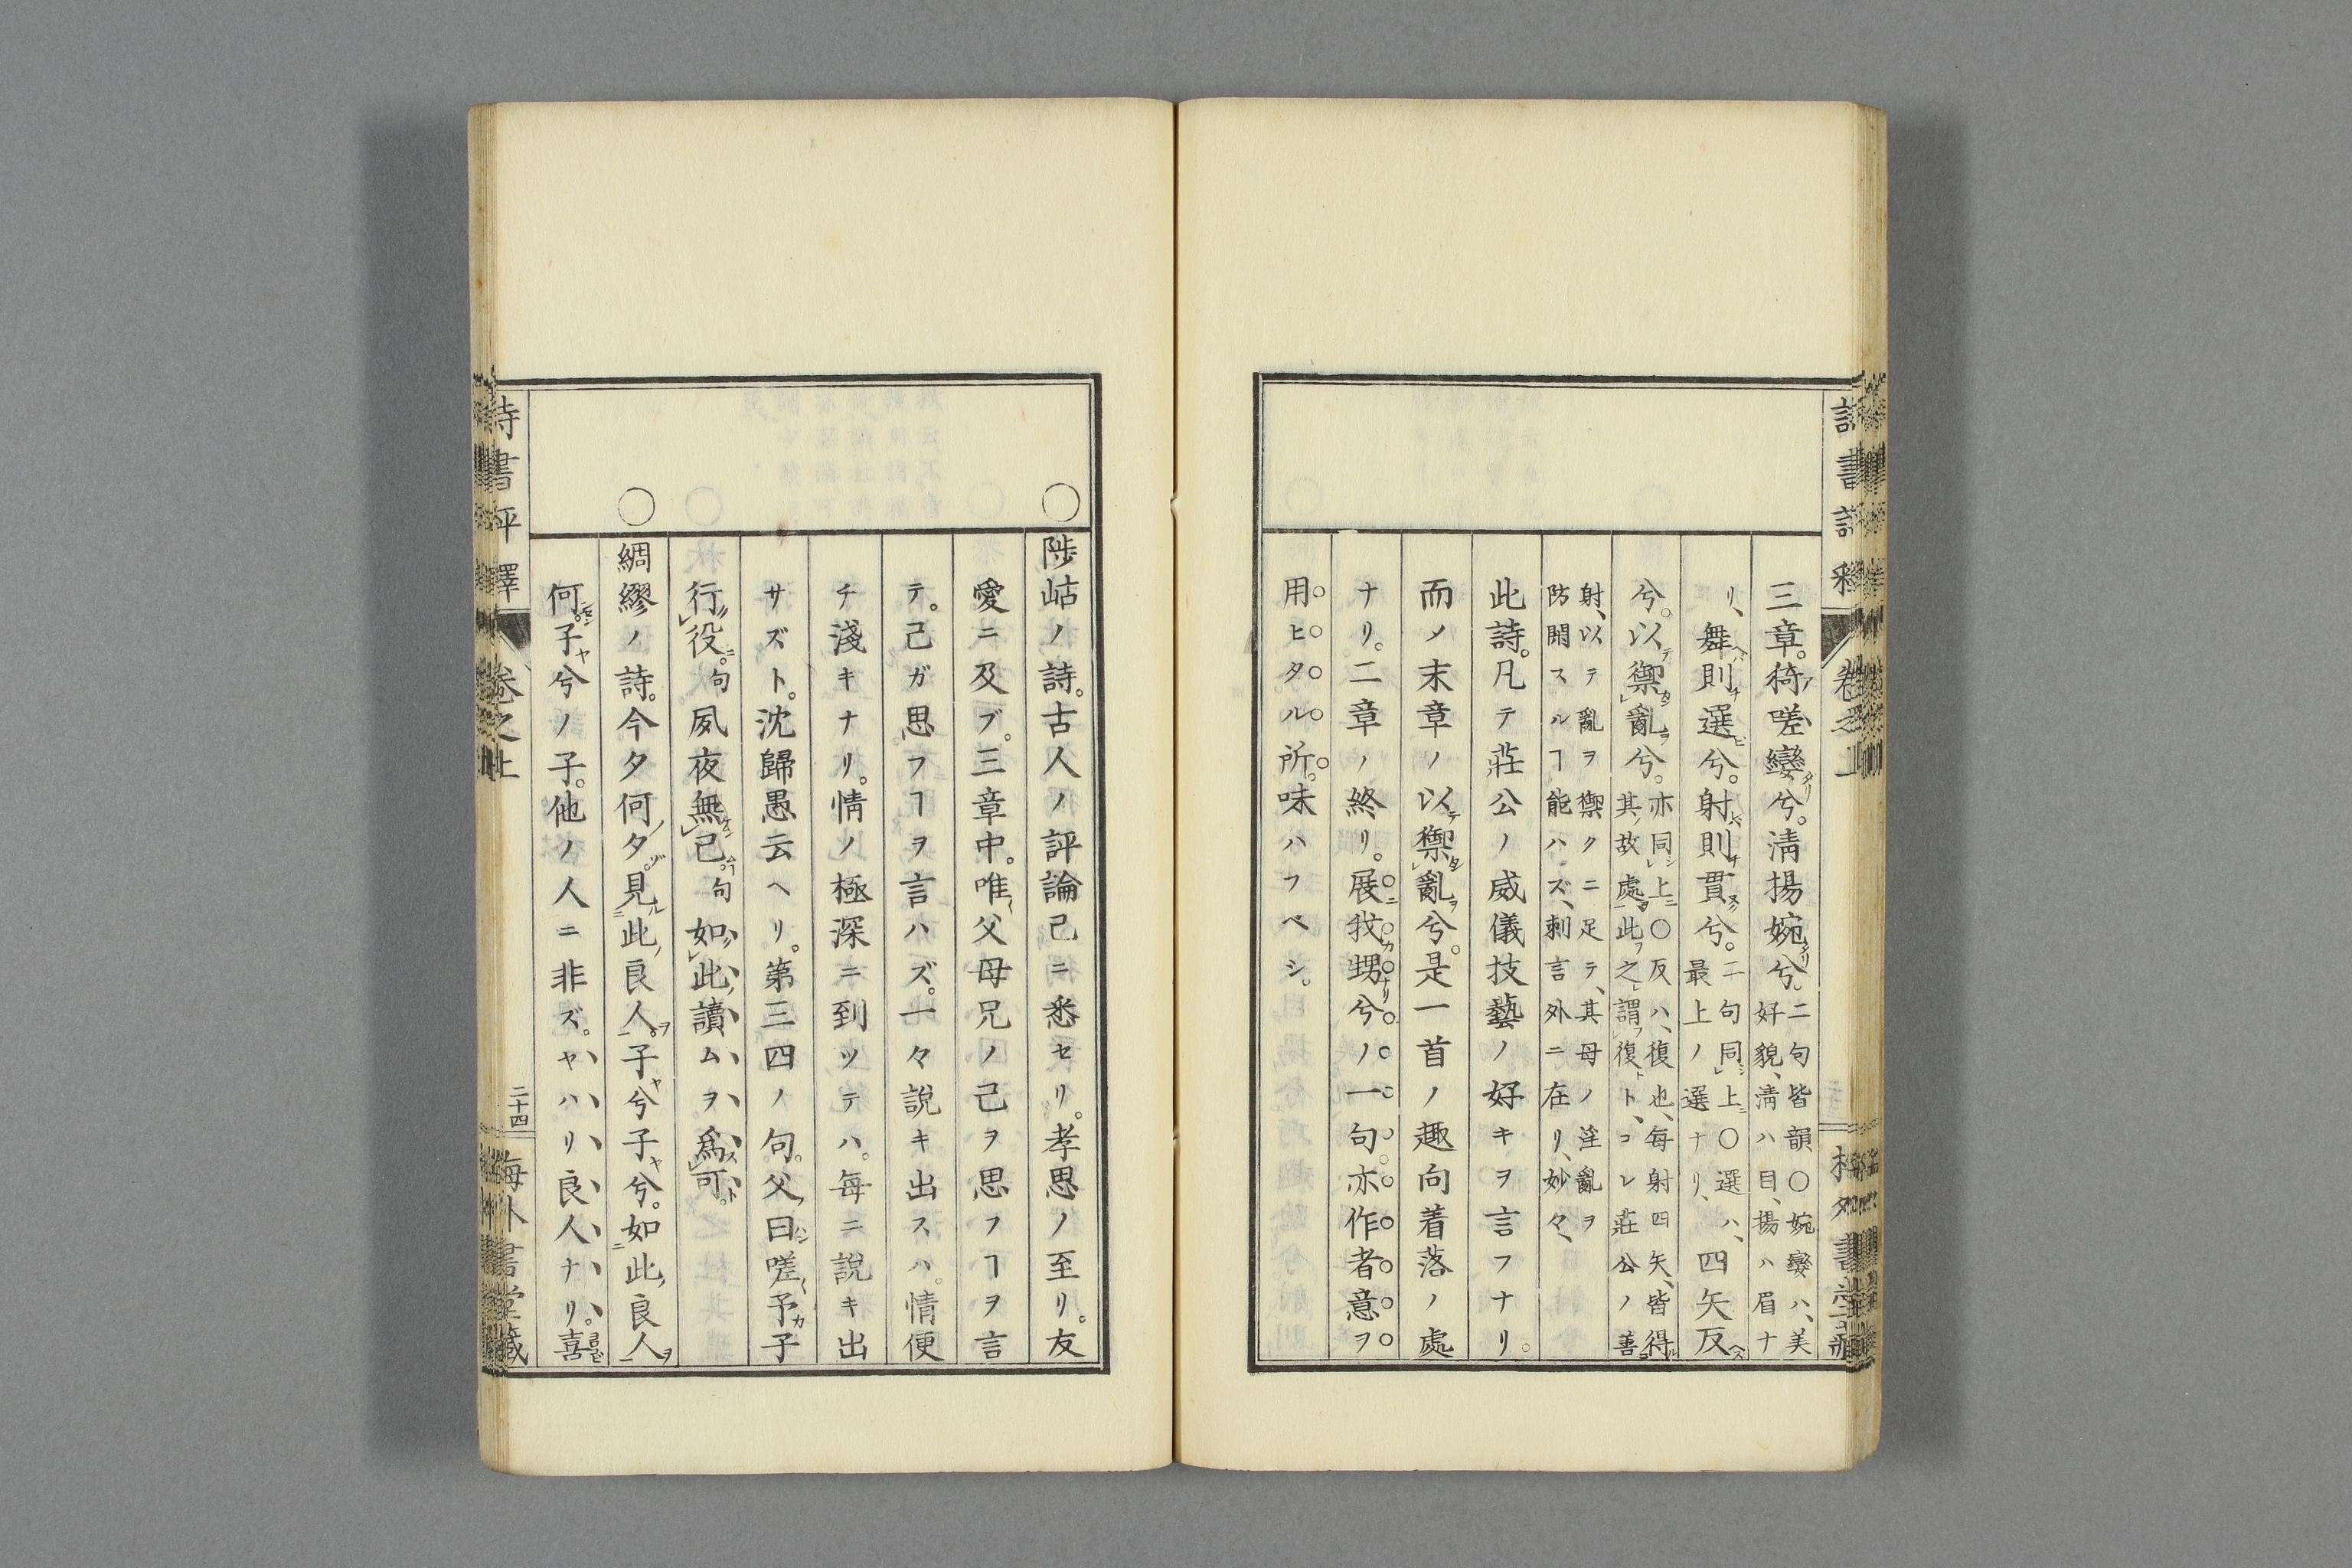 三章。猗嗟孌兮。淸揚婉兮。二句皆韻〇婉孌ハ、美
好貌、淸ハ目、揚ハ眉ナ
リ、舞則選兮。射則貫兮。二句同上〇選ハ、
最上ノ選ナリ、四矢反
兮。以禦亂兮。亦同上〇反ハ、復也、每射四矢、皆得
其故處、此之謂復ト、コレ莊公ノ善
射、以テ亂ヲ禦クニ足テ、其母ノ淫亂ヲ
防閑スルヿ能ハズ、刺言外ニ在リ、妙々、
此詩。凡テ莊公ノ威儀技藝ノ好キヲ言フナリ。
而メ末章ノ以禦亂兮。是一首ノ趣向着落ノ處
ナリ。二章ノ終リ。展我甥兮。ノ一句。亦作者意ヲ
用ヒタル所。味ハフベシ。
〇
陟岵ノ詩。古人ノ評論已ニ悉セリ。孝思ノ至リ。友
愛ニ及ブ。三章中。唯父母兄ノ己ヲ思フヿヲ言
テ。己ガ思フヿヲ言ハズ。一々說キ出スハ。情便
チ淺キナリ。情ノ極深ニ到ツテハ。每ニ說キ出
サズト。沈歸愚云ヘリ。第三四ノ句。父曰嗟予子
行役。句夙夜無已。句如此讀ムヲ爲可。
〇
綢繆ノ詩。今夕何夕。見此良人。子兮子兮。如此良人
何。子兮ノ子。他ノ人ニ非ズ。ヤハリ良人ナリ。喜
詩書評釋
卷之上
二十四
梅外書堂藏